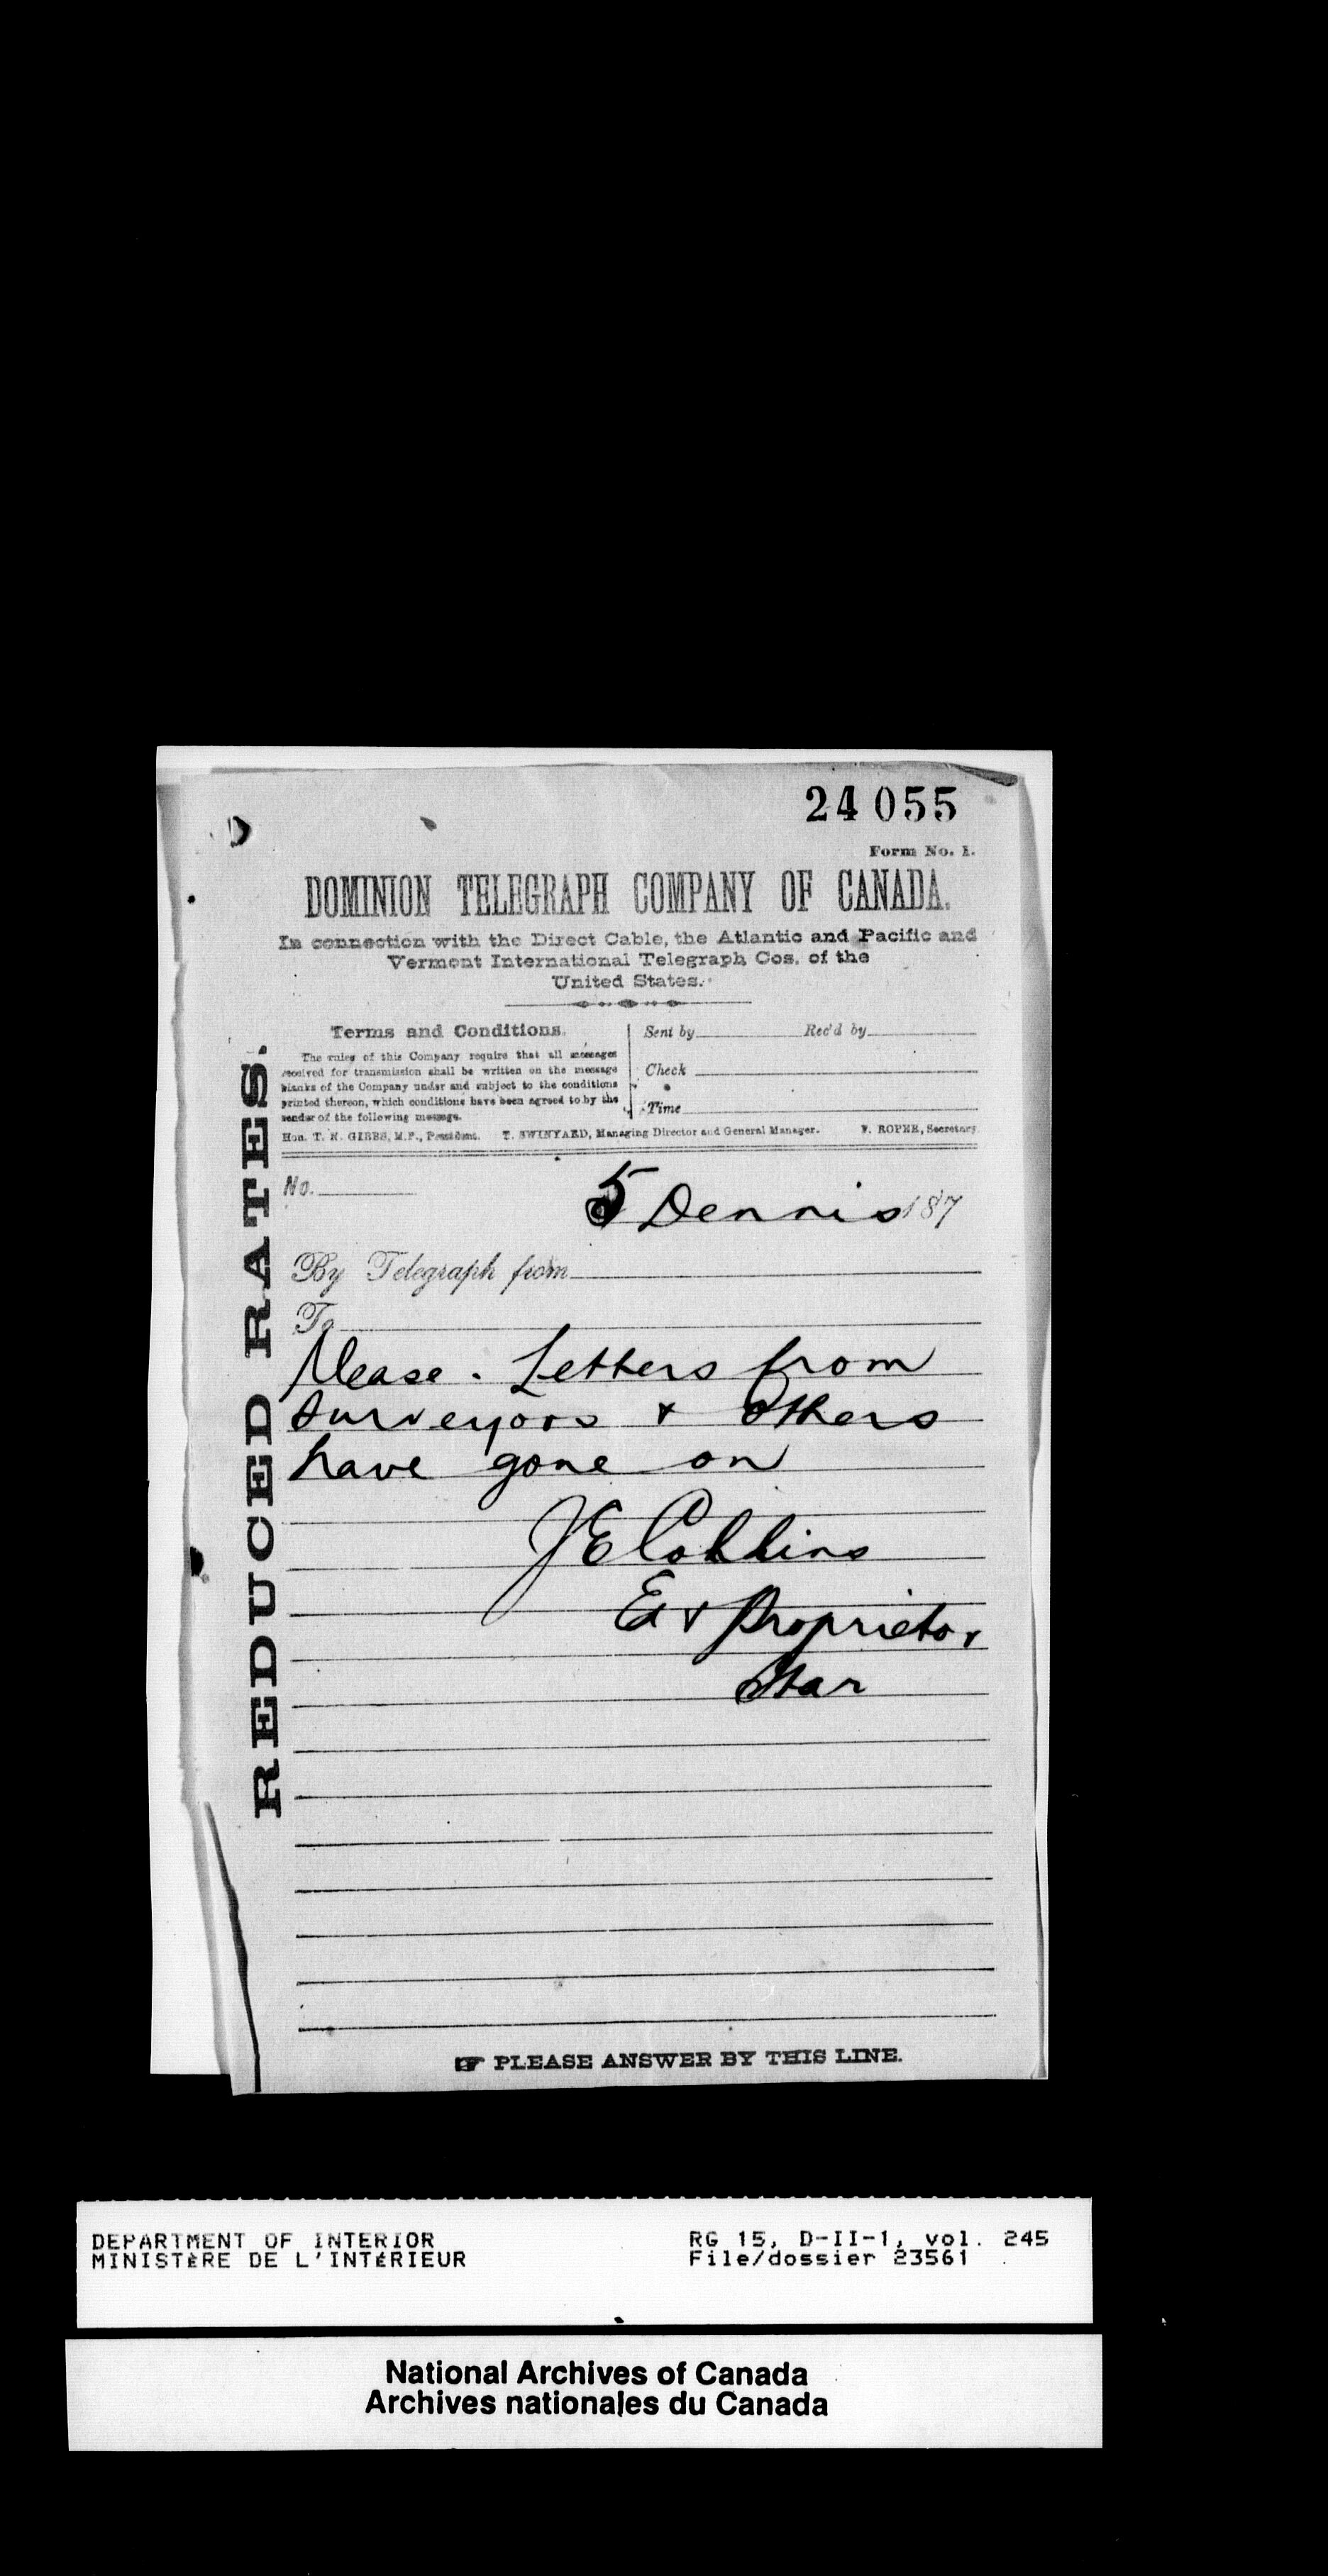 24055
Form No. 1.
DOMINION TELEGRAPH COMPANY OF CANADA.
In connection with the Direct Cable, the Atlantic and Pacific and
Vermont International Telegraph Cos. of the
United States.
Terms and Conditions.
The rules of this Company require that all messages
received for transmission shall be written on the message
blanks of the Company under and subject to the conditions
printed thereon, which conditions have been agreed to by the
sender of the following message.
Sent by Rec'd by
Check
Time
Hon. T. N. GIBBS, M.P., President. T. SWINYARD, Managing Director and General Manager. F. ROPER, Secretary.
REDUCED RATES.
No.
5 Dennis 187
By Telegraph from
To
Please. Letters from
surveyors & others
have gone on
J E Collins
Ed & Proprietor
Star
☞ PLEASE ANSWER BY THIS LINE.
DEPARTMENT OF INTERIOR RG 15, D-II-1, vol. 245
MINISTÈRE DE L'INTÉRIEUR File/dossier 23561
National Archives of Canada
Archives nationales du Canada